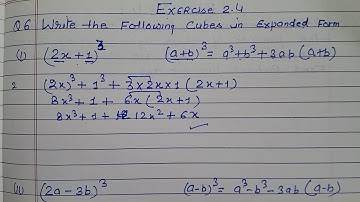 EXERCISE 2.4
Q6 Write the Following Cubes in Expanded Form
(i) (2x+1)³ (a+b)³ = a³+b³+3ab(a+b)
(2x)³ + 1³ + 3×2x×1 (2x+1)
8x³ + 1 + 6x(2x+1)
8x³ + 1 + 12x² + 6x
(ii) (2a-3b)³ (a-b)³ = a³-b³-3ab(a-b)